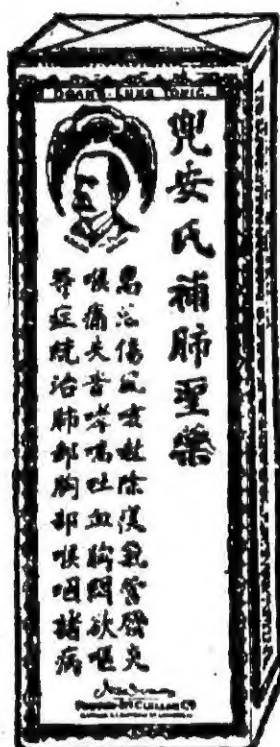 DOAN'S LUNG TONIC.
兜安氏補肺聖藥
專治傷風咳嗽除痰氣管發炎
喉痛失音哮喘吐血胸悶欲嘔
等症統治肺部胸部喉咽諸病
Foster-McClellan Co.